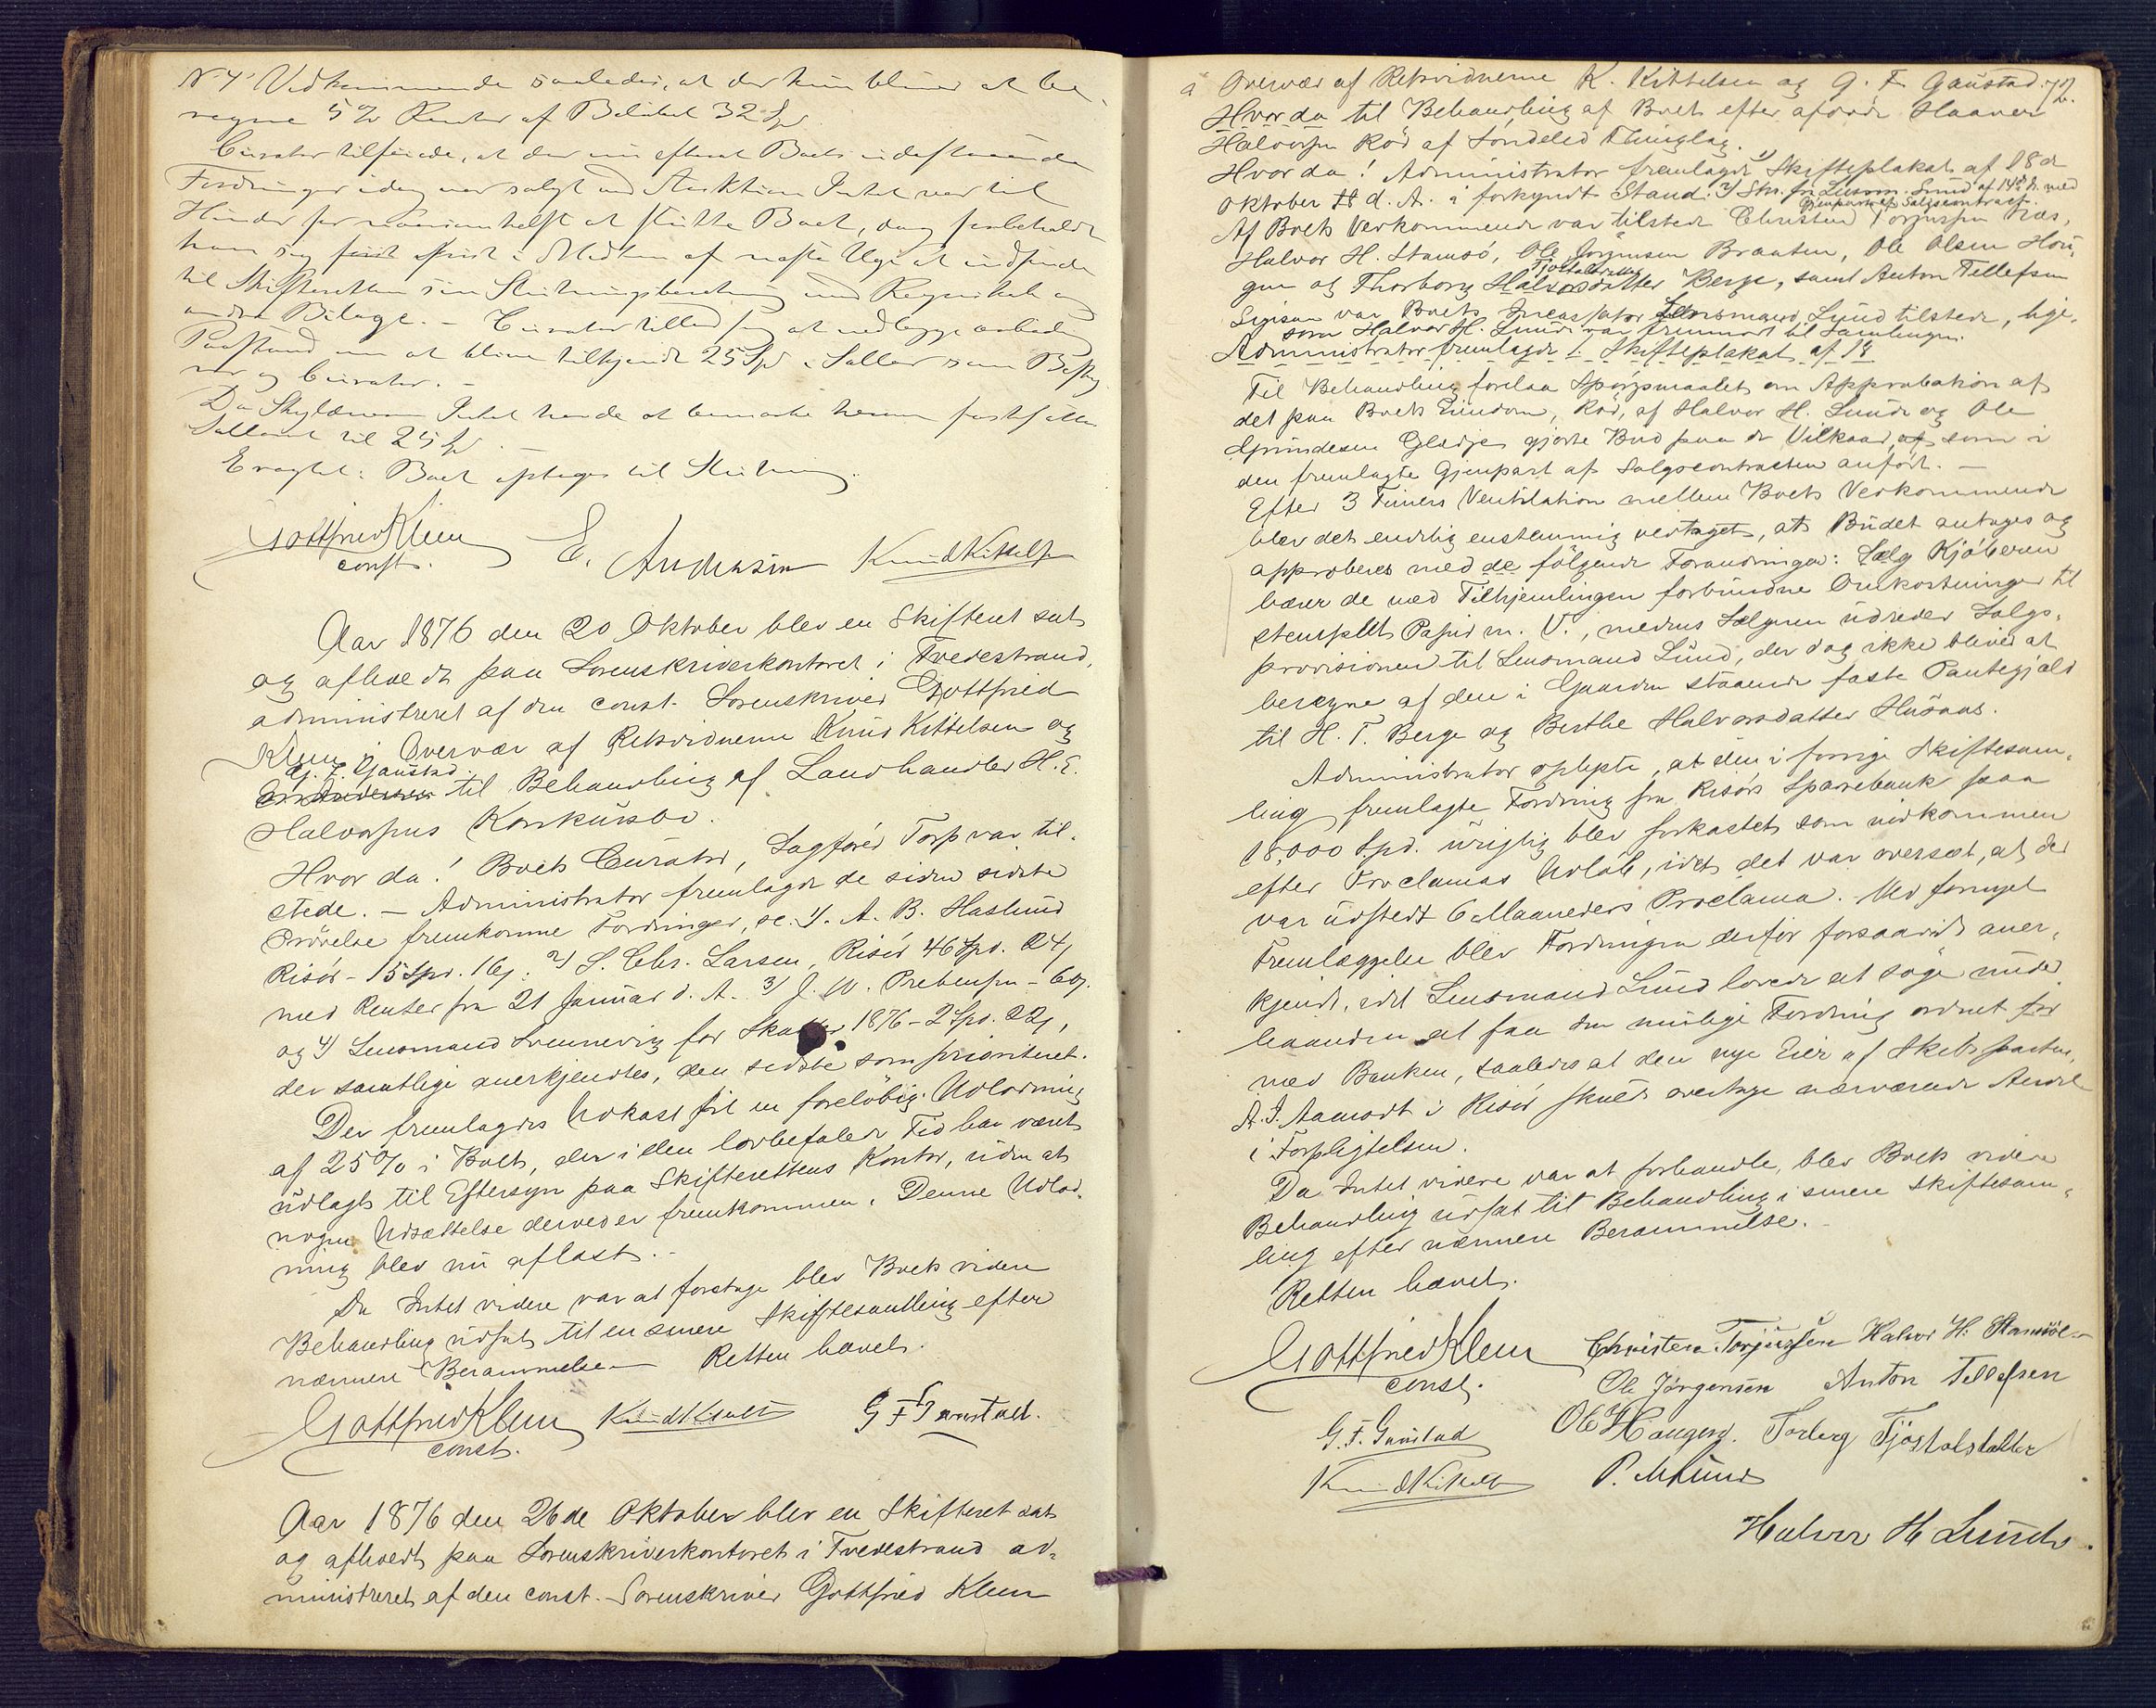 N. 4 Vedkommende saaledes, at der kun bliver at be-
regne 5 % Renter af Beløbet 32 Spd.
Curator tilføiede, at der nu efterat Boets udestaaende
Fordringer idag var solgt ved Auktion Intet var til
Hinder for at slutte Boet, dog forbeholdt
han sig først i Midten af næste Uge at indfinde
til Skifteretten sin Slutningsberetning med Regnskab og
andre Bilage. – Curator tillod sig at nedlægge
Paastand om at blive tilkjendt 25 Spd i Sallær som Besty-
rer og Curator. –
Da Skyldneren Intet havde at bemærke herimod fastsattes
Sallæret til 25 Spd.
Eragtet: Boet optages til Slutning.
Gottfried Klem E. Andersen Knud Kittelsen
const.
Aar 1876 den 20 Oktober blev en Skifteret sat
og afholdt paa Sorenskriverkontoret i Tvedestrand,
administreret af den const. Sorenskriver Gottfried
Klem i Overvær af Retsvidnerne Knud Kittelsen og
G. F. Gaustad
E. Andersen til Behandling af Landhandler H. E.
Halvorsens Konkursbo.
Hvor da! Boets Curator, Sagfører Torp var til-
stede. – Administrator fremlagde de siden sidste
Prøvelse fremkomne Fordringer, sc. 1/ A. B. Haslund
Risør – 15 Spd. 16 s. 2/ S. Chr. Larsen, Risør 46 Spd. 24 s
med Renter fra 21 Januar d. A. 3/ J. W. Prebensen – 60 s.
og 4/ Lensmand Svennevig for Skatter 1876 – 2 Spd. 22 s,
der samtlige anerkjendtes, den sidste som prioriteret.
Der fremlagdes Udkast til en foreløbig Udlodning
af 25 % i Boet, der i den lovbefalede Tid har været
udlagt til Eftersyn paa Skifterettens Kontor, uden at
nogen Udsættelse derved er fremkommen. Denne Udlod-
ning blev nu aflæst. –
Da Intet videre var at foretage blev Boets videre
Behandling udsat til en senere Skiftesamling efter
nærmere Berammelse – Retten hævet.
Gottfried Klem Knud Kittelsen G F Gaustad.
const.
Aar 1876 den 26de Oktober blev en Skifteret sat
og afholdt paa Sorenskriverkontoret i Tvedestrand ad-
ministreret af den const. Sorenskriver Gottfried Klem
72.
i Overvær af Retsvidnerne K. Kittelsen og G. F. Gaustad
Hvor da til Behandling af Boet efter afdøde Haaver
Halvorsen Rød af Søndeled Thinglag.
Hvor da! Administrator fremlagde 1/ Skifteplakat af 18 d
Oktober 18 d. A. i forkyndt Stand. 2/ Skr. fra Lensm. Lund af 14d. d. med
Gjenpart af Salgscontract.
Af Boets Vedkommende var tilstede Christen Torjussen Næs,
Halvor H. Stamsø, Ole Jørgensen Braaten, Ole Olsen Hou-
Tjøstolsdatter
gen og Thorborg Halvorsdatter Berge, samt Anton Tellefsen
Ligesaa var Boets Incassator Lensmand Lund tilstede, lige-
som Halvor H. Lunde var fremmødt til Samlingen.
Administrator fremlagde 1. Skifteplakat af 18
Til Behandling forelaa Spørgsmaalet om Approbation af
det paa Boets Eiendom, Rød, af Halvor H. Lunde og Ole
Gundersen Gladje gjorte Bud paa de Vilkaar, af som i
den fremlagte Gjenpart af Salgscontracten anført. –
Efter 3 Timers Ventilation mellem Boets Vedkommende
blev det endelig enstemmig vedtaget, at Budet antages og
approberes med de følgende Forandringer: Sælg Kjøberen
bærer de ved Tilhjemlingen forbundne Omkostninger til
stemplet Papir m. V., medens Sælgeren udreder Salgs-
provisionen til Lensmand Lund, der dog ikke bliver at
beregne af den i Gaarden staaende faste Pantegjæld
til H. T. Berge og Berthe Halvorsdatter Husaas.
Administrator oplyste, at den i forrige Skiftesam-
ling fremlagte Fordring fra Risørs Sparebank paa
18,000 Spd. urigtig blev forkastet som indkommen
efter Proclamas Udløb, idet det var overseet, at der
var udstedt 6 Maaneders Proclama. Ved fornyet
Fremlæggelse blev Fordringen derfor forsaavidt aner-
kjendt, idet Lensmand Lund lovede at søge under-
haanden at faa den mulige Fordring ordnet for
med Banken, saaledes at den nye Eier af Skibsparten,
A. J. Aamodt i Risør skulde overtage nærværende Andel
i Forpligtelsen.
Da Intet videre var at forhandle, blev Boets videre
Behandling udsat til Behandling i senere Skiftesam-
ling efter nærmere Berammelse. –
Retten hævet.
Gottfried Klem Christen Torjussen Halvor H. Stamsøe
const. Ole Jørgensen Anton Tellefsen
G. F. Gaustad Ole Haugen. Torberg Tjøstolsdatter
Knud Kittelsen P. M Lund
Halvor H Lunde.